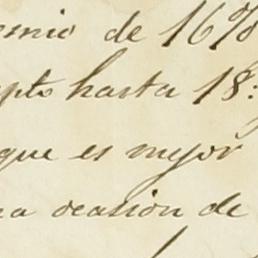 emio de 16%
pto hasta 18:
que es mejor
na ocasion de